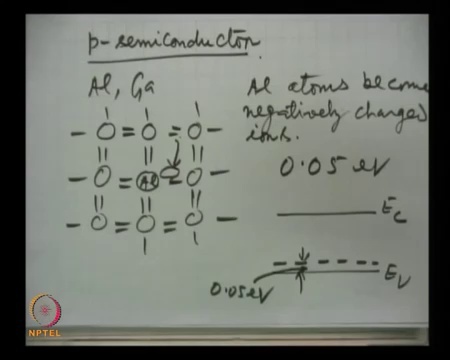 p-semiconductor
Al, Ga
Al atoms become
negatively charged
ions.
0.05 eV
Al
Ec
Ev
0.05eV
NPTEL